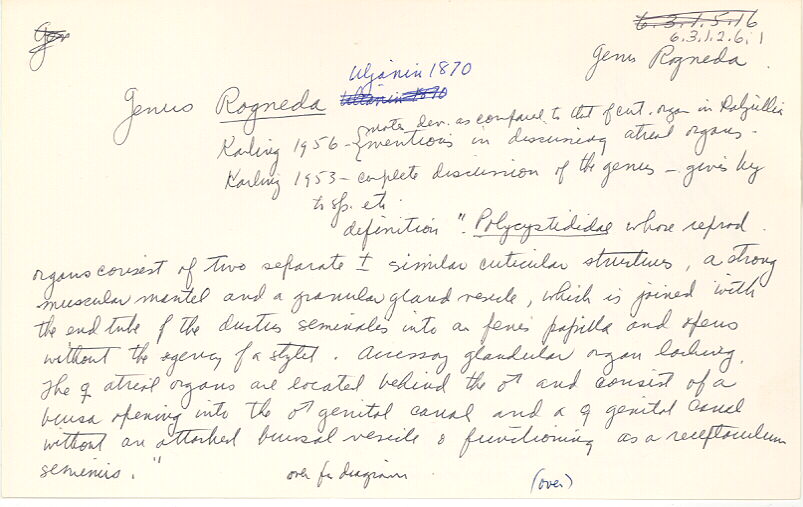 6.3.1.5.16
6.3.1.2.6.1
Genus Rogneda.
Uljanin 1870
Genus Rogneda Ulianin 1870
Karling 1956 - {notes dev. as compared to that of cut. organ in Dalyellia
mentions in discussing atrial organs -
Karling 1953 - complete discussion of the genus - gives key
to sp. etc.
definition ": Polycystididae whose reprod.
organs consist of two separate ± similar cuticular structures, a strong
muscular mantel and a granular gland vesicle, which is joined with
the end tube of the ductus seminales into a penis papilla and opens
without the agency of a stylet. Accessory glandular organ lacking.
The ♀ atrial organs are located behind the ♂ and consist of a
bursa opening into the ♂ genital canal and a ♀ genital canal
without an attached bursal vesicle & functioning as a receptaculum
seminis."
over for diagrams
(over)